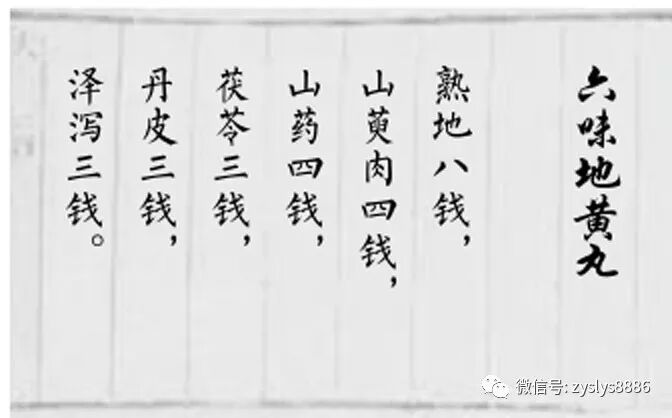 六味地黄丸
熟地八钱，
山萸肉四钱，
山药四钱，
茯苓三钱，
丹皮三钱，
泽泻三钱。
微信号: zyslys8886